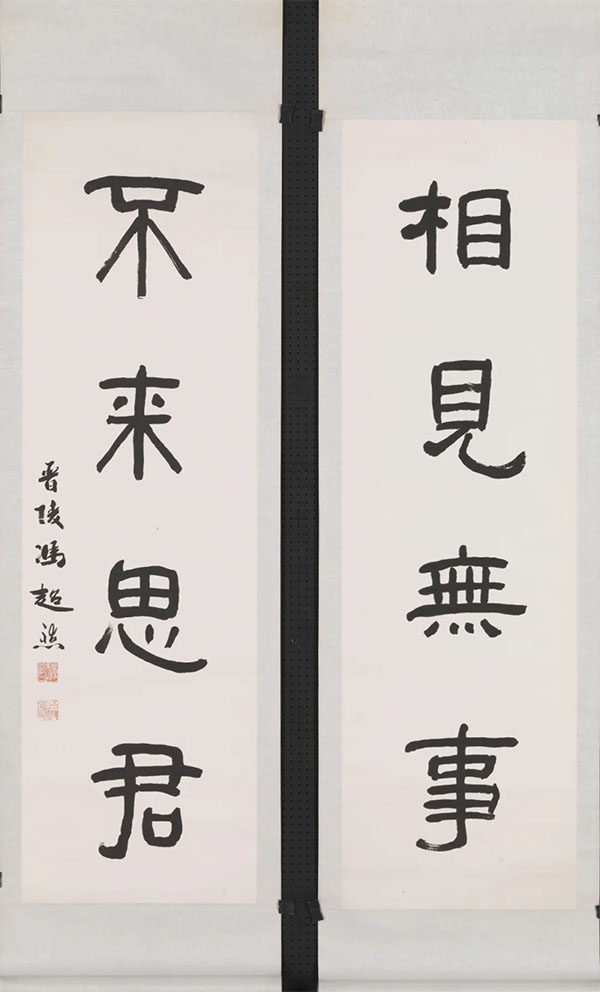 相見無事
不来思君
晉陵馮超然